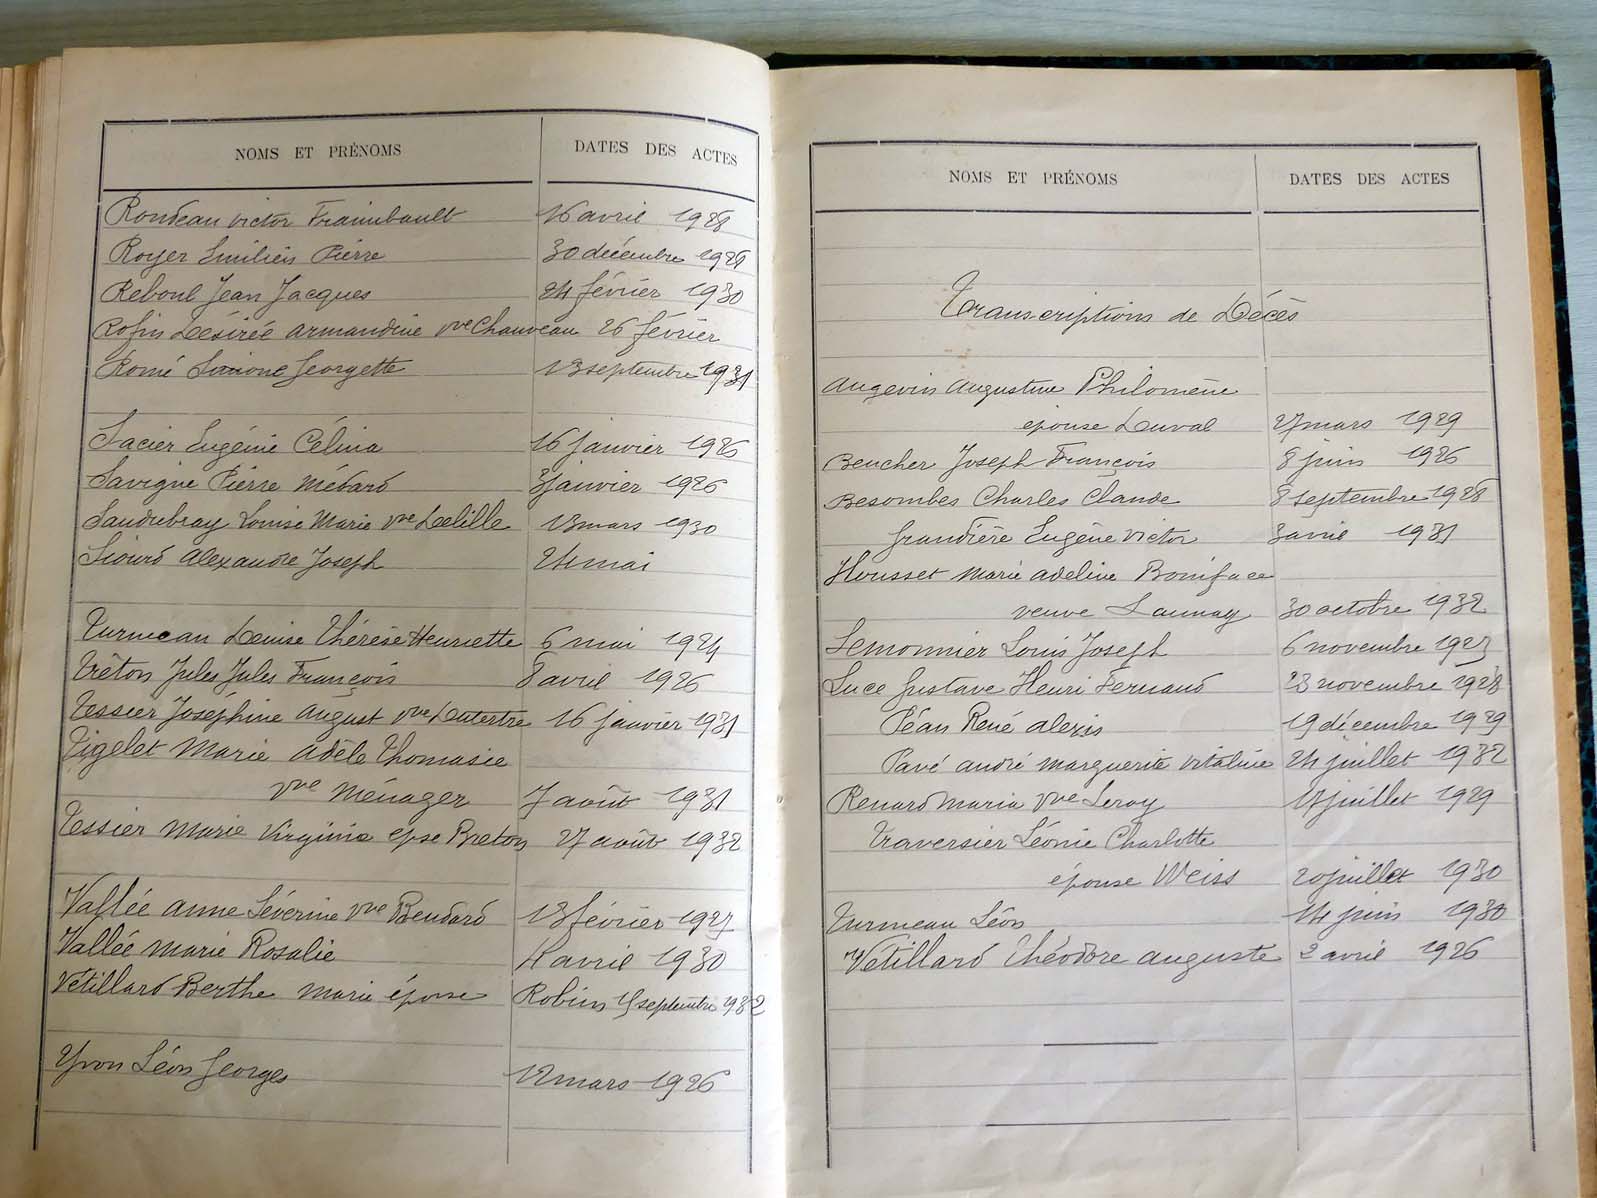 NOMS ET PRÉNOMS DATES DES ACTES
Rondeau Victor Fraimbault 16 avril 1928
Royer Emilien Pierre 30 décembre
Reboul Jean Jacques 24 février 1930
Désirée Armandine vve Chauveau 26 février
Romé Simone Georgette 13 septembre 1931
Sacier Eugénie Célina 16 janvier 1926
Savigne Pierre Médard 3 janvier 1926
Saudubray Louise Marie vve Delille 13 mars 1930
Siouro Alexandre Joseph 24 mai
Turmeau Denise Thérèse Henriette 6 mai
Trêton Jules Jules François 8 avril 1926
Tessier Joséphine August vve Dutertre 16 janvier 1931
Tigelet Marie Adèle Thomasie
vve Ménager 7 août 1931
Tessier Marie Virginie épse Breton 27 août 1932
Vallée Anne Séverine vve Beudard 13 février 1927
Vallée Marie Rosalie 4 avril 1930
Vétillard Berthe Marie épouse Robin septembre 1932
Yvon Léon Georges 12 mars 1926
NOMS ET PRÉNOMS DATES DES ACTES
Transcriptions de Décès
Angevin Augustine Philomène
épouse Duval 27 mars 1929
Beucher Joseph François 8 juin 1926
Besombes Charles Claude 8 septembre 1928
Grandière Eugène Victor 3 avril 1931
Housset Marie Adeline Boniface
veuve Launay 30 octobre 1932
Lemonnier Louis Joseph 6 novembre 1923
Luce Gustave Henri Fernand 23 novembre 1928
Péan René Alexis 19 décembre 1929
Pavé André Marguerite Vitaline 24 juillet 1932
Renard Maria vve Leroy juillet 1929
Traversier Léonie Charlotte
épouse Weiss 20 juillet 1930
Turmeau Léon 14 juin 1930
Vétillard Théodore Auguste 2 avril 1926